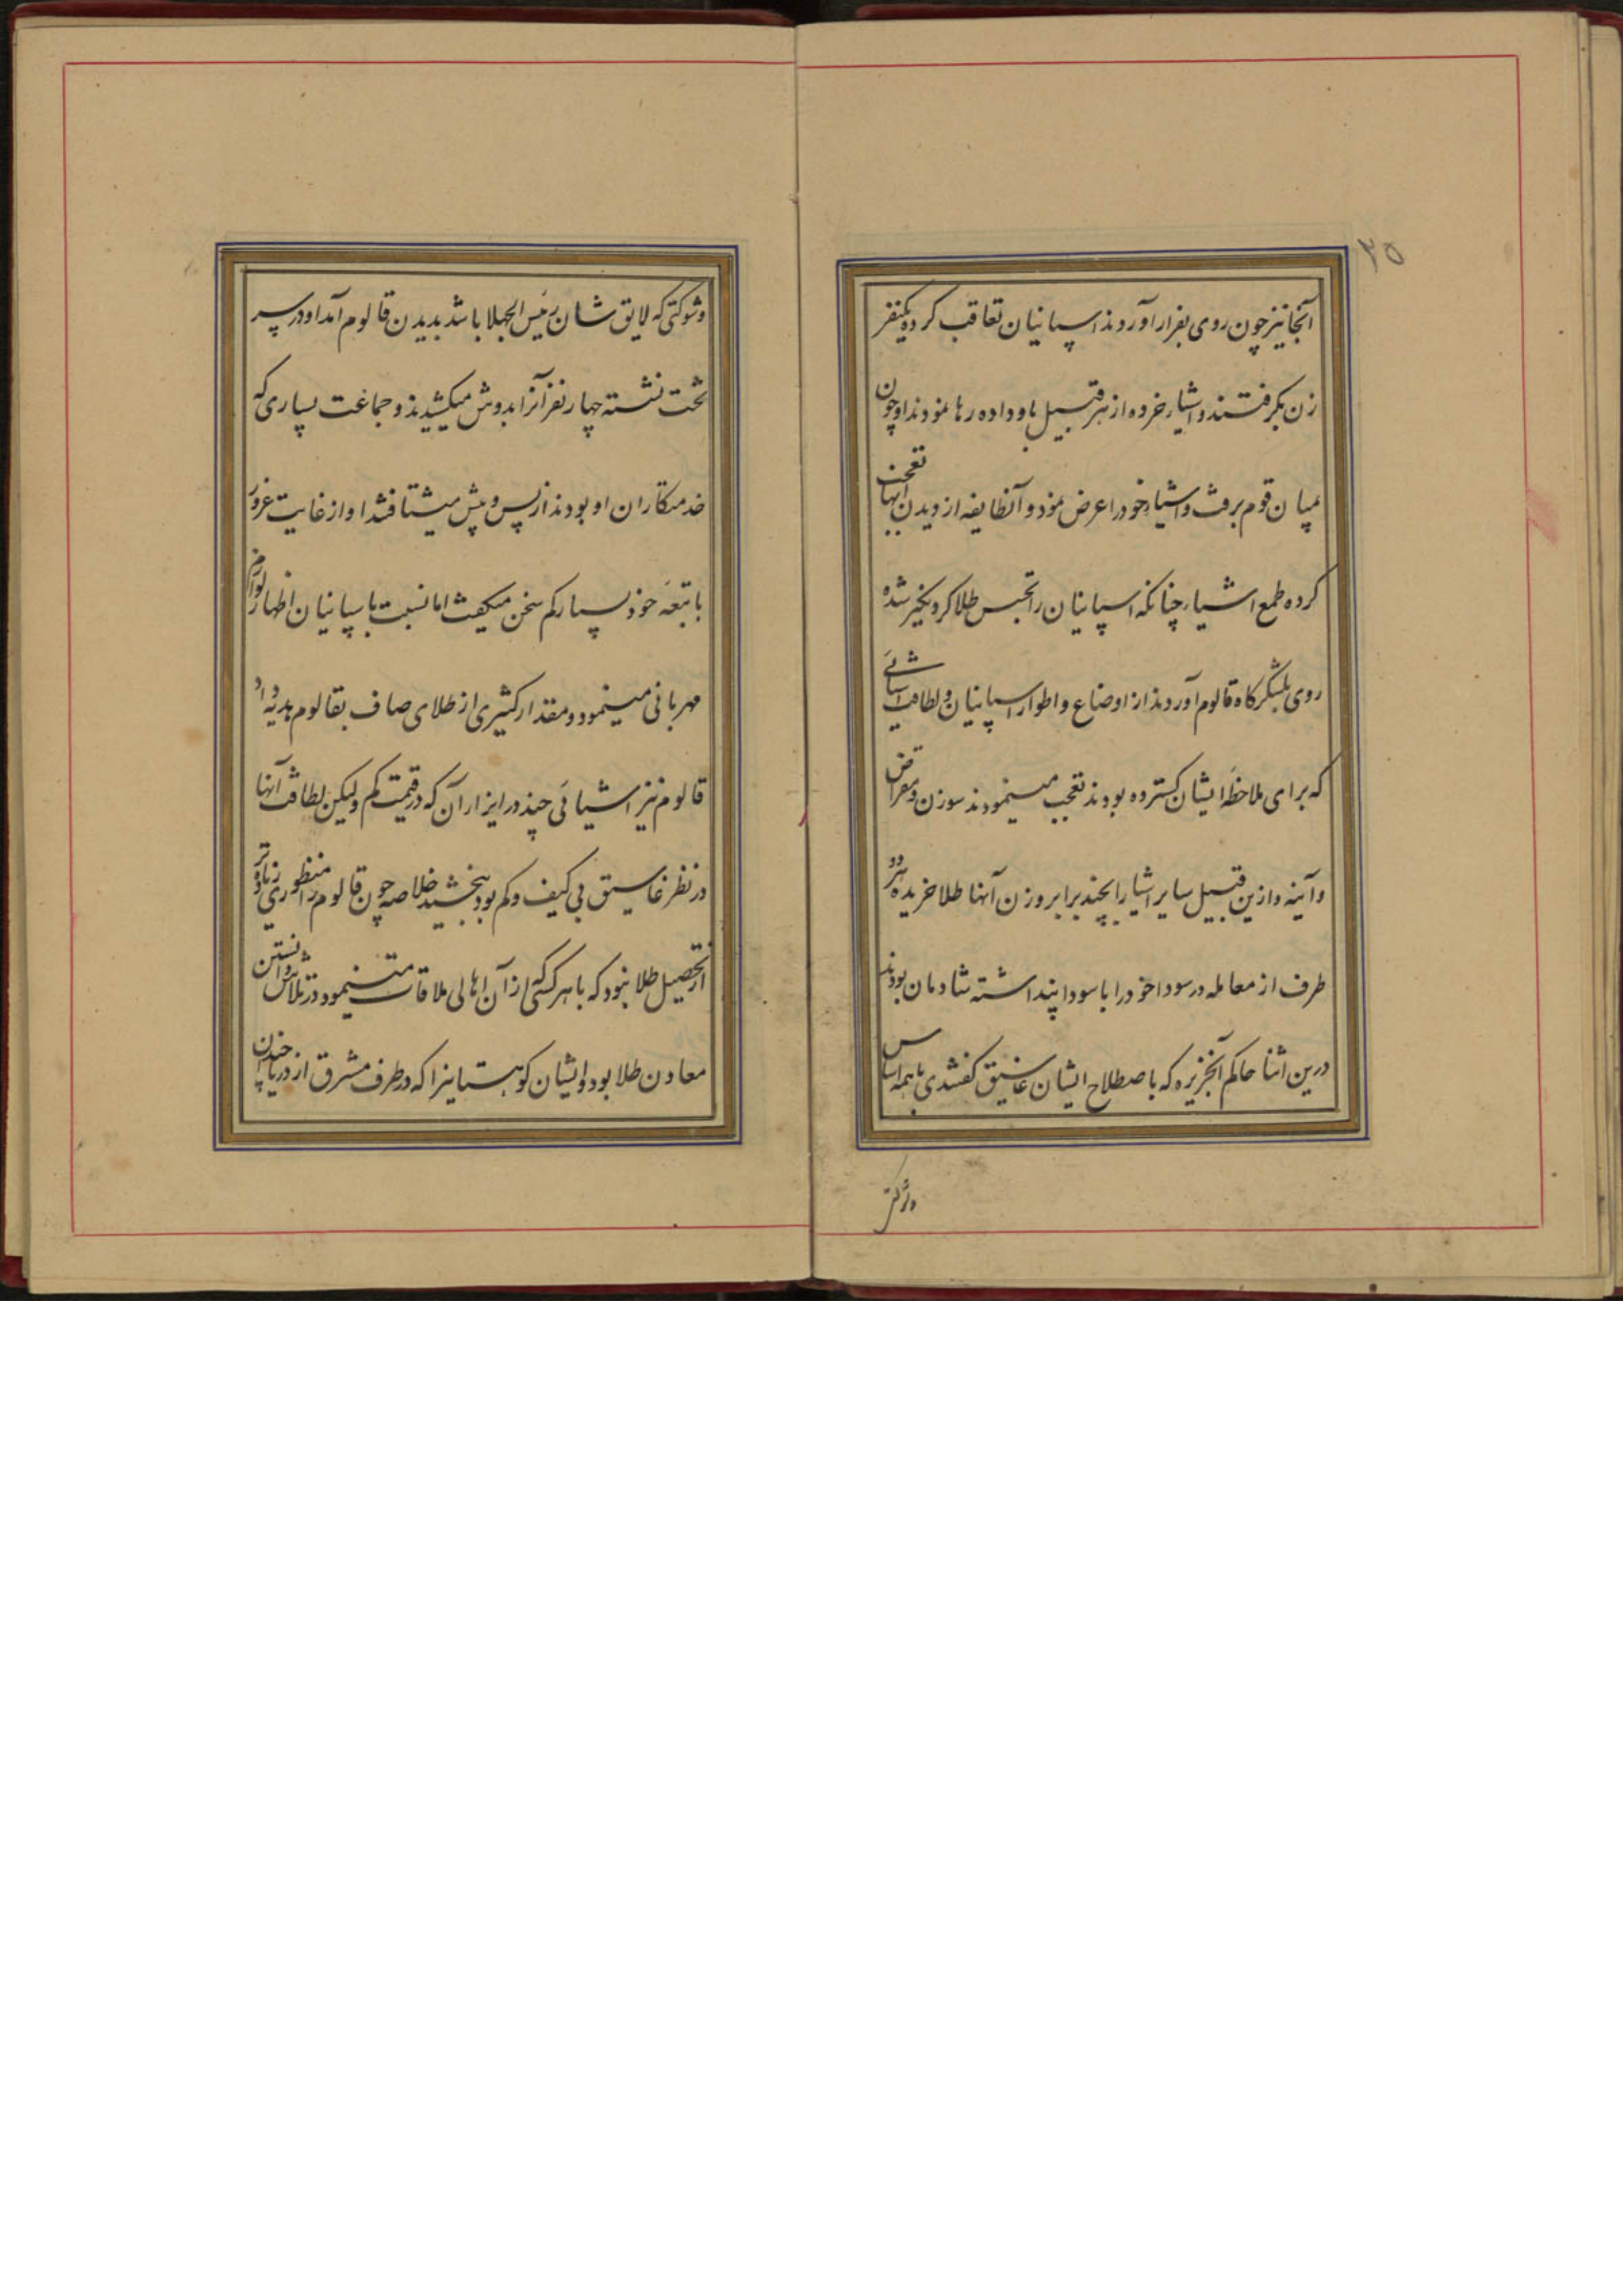 ۲۵
آنجا نیز چون روی بفرار آوردند اسپانیان تعاقب کرده یکنفر
زن بگرفتند و اشیاء خرده از هر قبیل باو داده رها نمودند او چون
میان قوم برفت و اشیاء خود را عرض نمود و آنطایفه از دیدن آنها تعجب
کرده طمع اشیاء چنانکه اسپانیان را تجسس طلا کرد شده
روی بلشکرگاه قالوم آوردند از اوضاع و اطوار اسپانیان و لطافت اشیائی
که برای ملاحظهٔ ایشان گسترده بودند تعجب مینمودند سوزن و مقراض
و آینه و ازین قبیل سایر اشیاء را بچند برابر وزن آنها طلا خریده هر دو
طرف از معامله در سودا خود را با سود پنداشته شادمان بودند
درین اثنا حاکم آنجزیره که باصطلاح ایشان غاسیق گفتندی با همه اساس
و شوکتی که لایق شان رئیس الجهلا باشد بدیدن قالوم آمد او در سر
تخت نشسته چهار نفر آنرا بدوش میکشیدند و جماعت بسیاری که
خدمتکاران او بودند از پس و پیش میشتافتند او از غایت غرور
با تبعهٔ خود بسیار کم سخن میگفت اما نسبت باسپانیان اظهار لوازم
مهربانی مینمود و مقدار کثیری از طلای صاف بقالوم هدیه داد
قالوم نیز اشیائی چند در ازاء آن که در قیمت کم و لیکن لطافت آنها
در نظر غاسیق بی کیف و کم بود ببخشید خلاصه چون قالوم را منظوری زیاده تر
از تحصیل طلا نبود که با هر کسی از آن اهالی ملاقات مینمود در تلاش دانستن
معادن طلا بود و ایشان کوهستانیرا که در طرف مشرق از دریا چندان